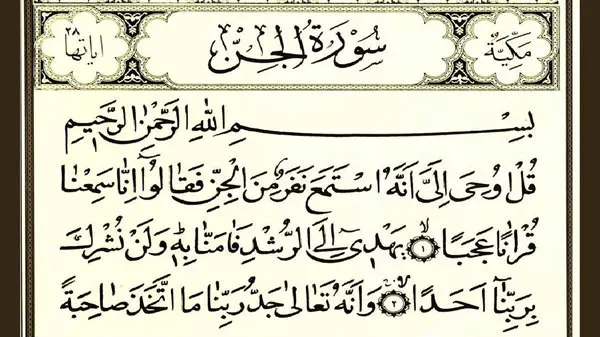 مَكِّيَّةٌ سُورَةُ الْجِنِّ اٰيَاتُهَا ٢٨
بِسْمِ اللهِ الرَّحْمٰنِ الرَّحِيمِ
قُلْ اُوحِىَ اِلَىَّ اَنَّهُ اسْتَمَعَ نَفَرٌ مِنَ الْجِنِّ فَقَالُٓوا اِنَّا سَمِعْنَا
قُرْاٰنًا عَجَبًا ﴿١﴾ يَهْدِىٓ اِلَى الرُّشْدِ فَاٰمَنَّا بِهٖ وَلَنْ نُشْرِكَ
بِرَبِّنَٓا اَحَدًا ﴿٢﴾ وَاَنَّهُ تَعَالٰى جَدُّ رَبِّنَا مَا اتَّخَذَ صَاحِبَةً